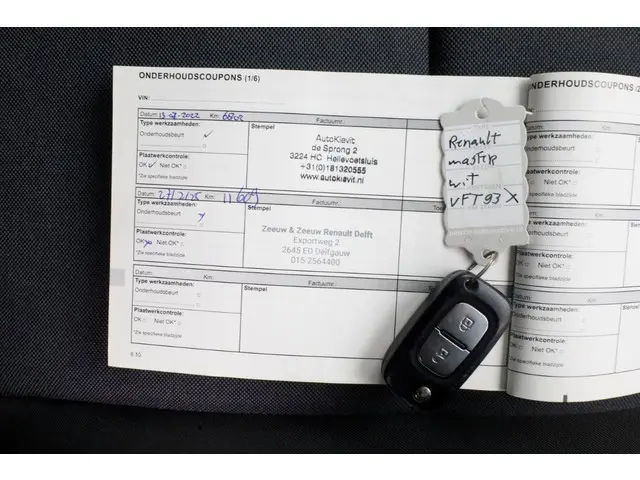 ONDERHOUDSCOUPONS (1/6)
VIN:
Datum: Km: 6802 Factuurnr.:
Type werkzaamheden:
Onderhoudsbeurt
Stempel
AutoKievit
de Sprong 2
3224 HC Hellevoetsluis
+31(0)181320555
www.autokievit.nl
Plaatwerkcontrole:
OK Niet OK*
*Zie specifieke bladzijde
Datum: 27/2/25 Km: Factuurnr.:
Type werkzaamheden:
Onderhoudsbeurt
Stempel
Zeeuw & Zeeuw Renault Delft
Exportweg 2
2645 ED Delfgauw
015 2564400
Plaatwerkcontrole:
OK Niet OK*
*Zie specifieke bladzijde
Datum: Km: Factuurnr.:
Type werkzaamheden:
Onderhoudsbeurt
Stempel
Plaatwerkcontrole:
OK Niet OK*
*Zie specifieke bladzijde
6.10
Renault
master
wit
VFT93X
ONDERHOUDSCOUPONS (2
Datum:
Type werkzaamheden:
Onderhoudsbeurt
Plaatwerkcontrole:
OK Niet OK*
*Zie specifieke bladzijde
Datum:
Type werkzaamheden:
Onderhoudsbeurt
Plaatwerkcontrole:
OK Niet OK*
*Zie specifieke bladzijde
Datum:
Type werkzaamheden:
Onderhoudsbeurt
Plaatwerkcontrole:
OK Niet OK*
*Zie specifieke bladzijde